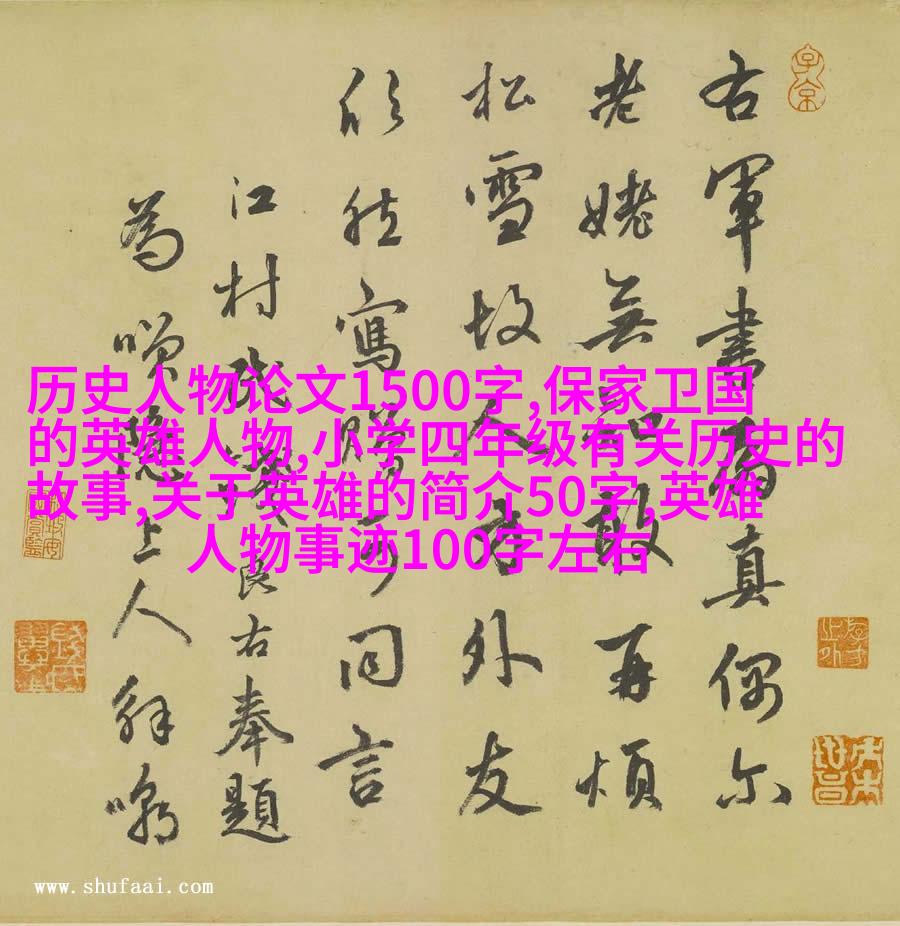 右軍書扇真偶尔
老姥無知敢再煩
松雪故人外友
欣然寫贈可同言
江村民錢良右奉題
為隱上人解嘲
历史人物论文1500字,保家卫国
的英雄人物,小学四年级有关历史的
故事,关于英雄的简介50字,英雄
人物事迹100字左右
www.shufaai.com